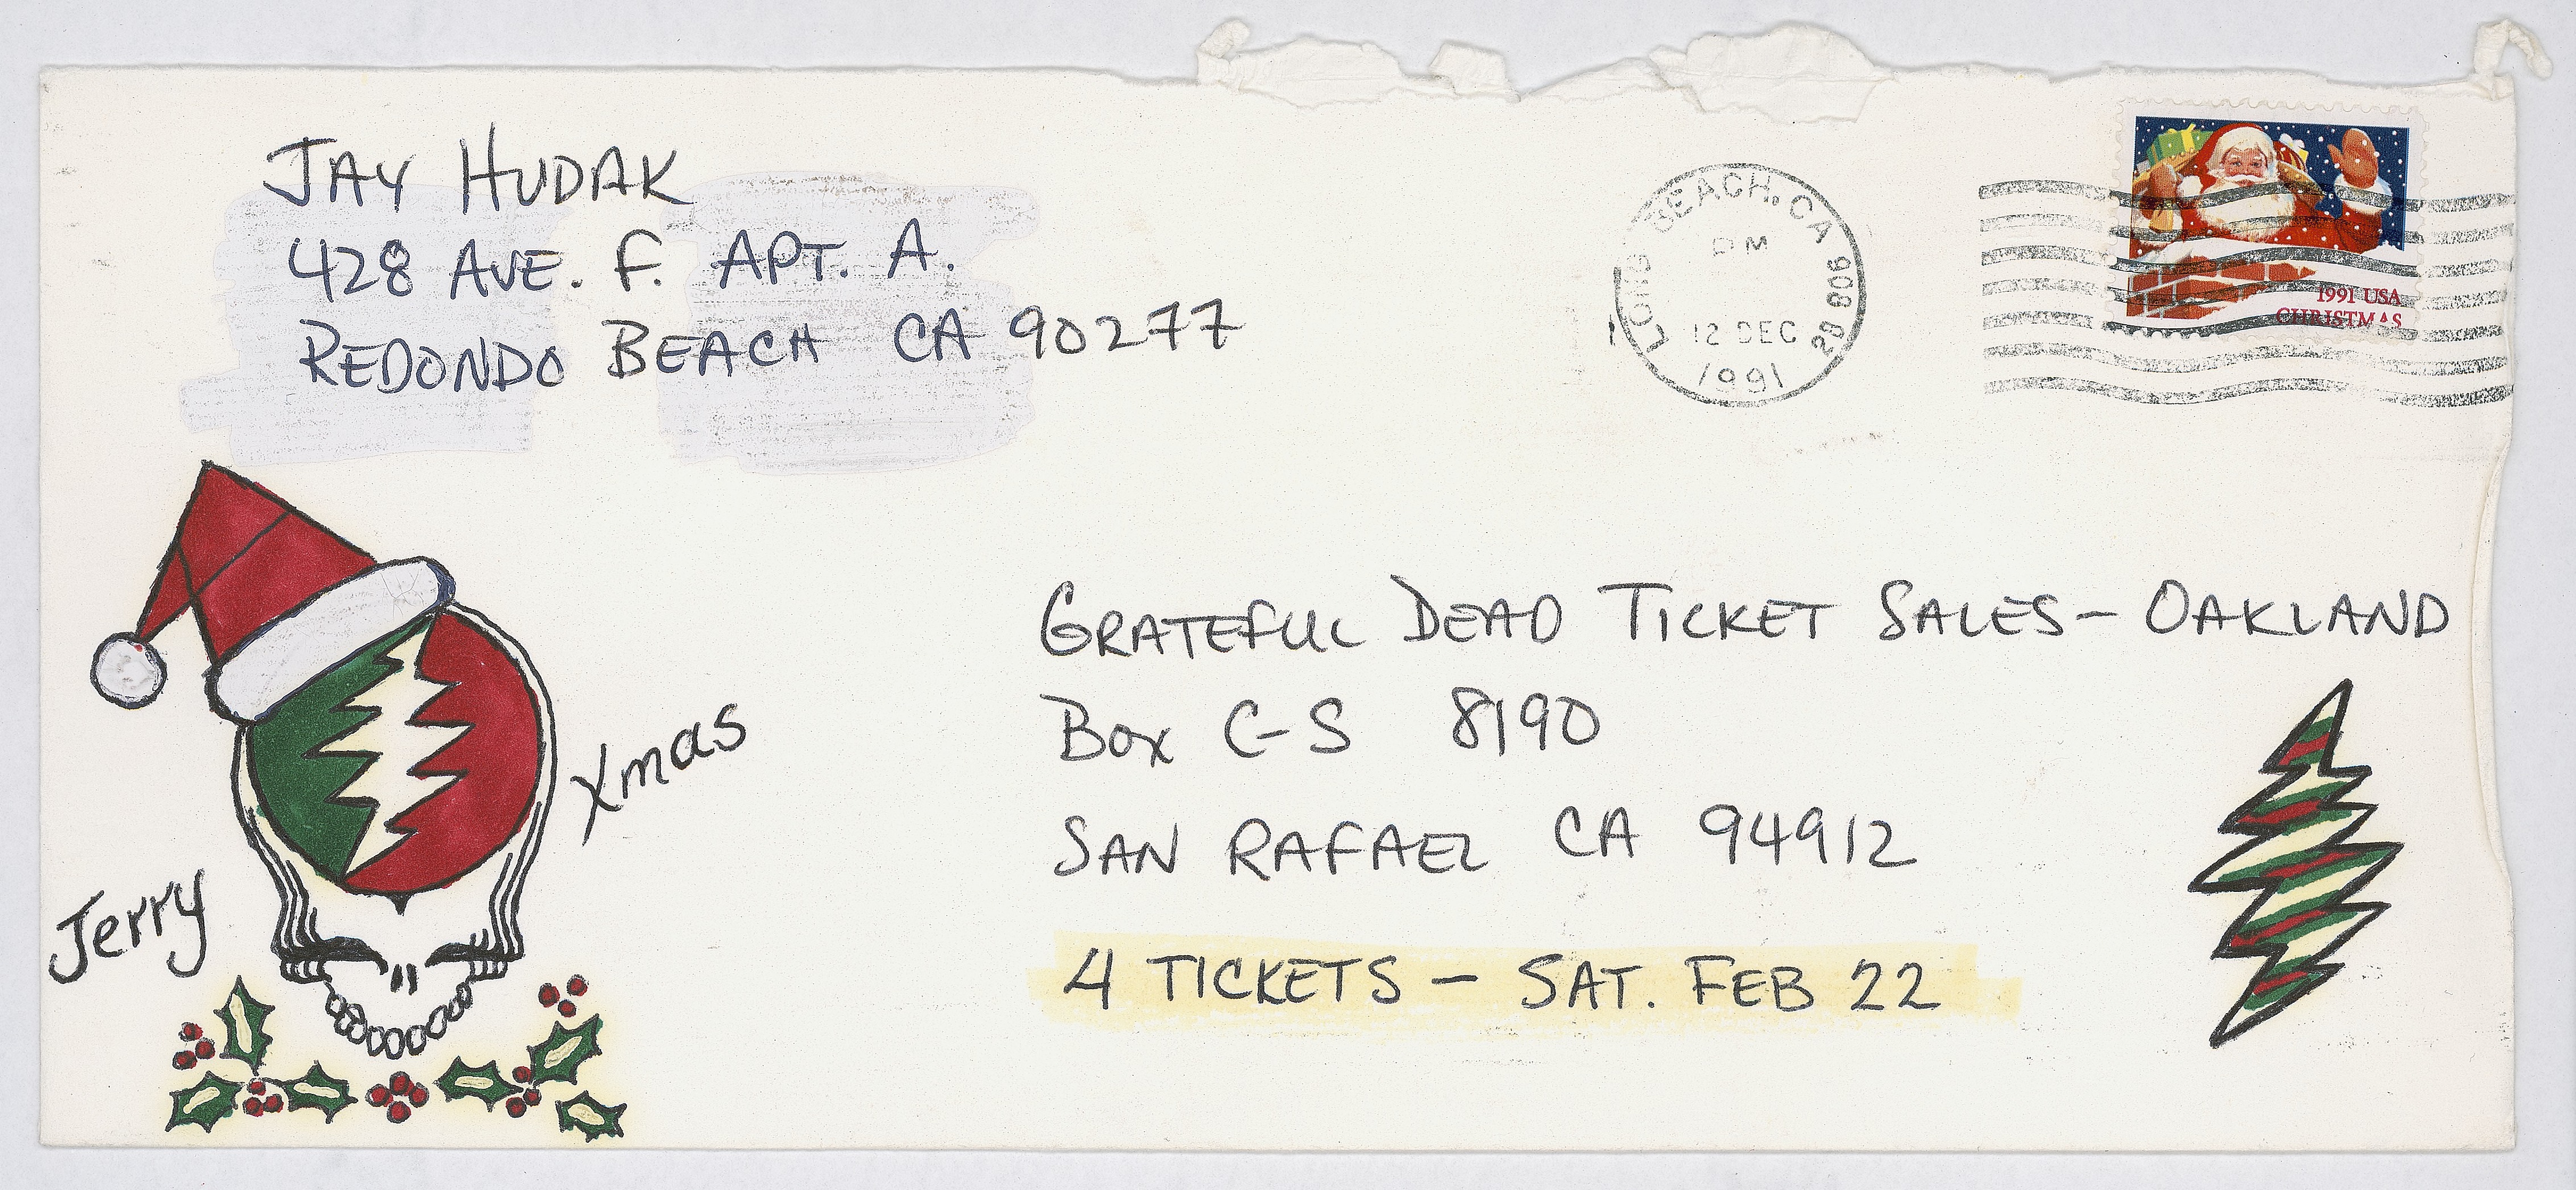 JAY HUDAK
428 AVE. F. APT. A.
REDONDO BEACH CA 90277
LONG BEACH, CA 908
PM
12 DEC
1991
1991 USA
CHRISTMAS
GRATEFUL DEAD TICKET SALES - OAKLAND
Box C-S 8190
SAN RAFAEL CA 94912
4 TICKETS - SAT. FEB 22
Jerry Xmas